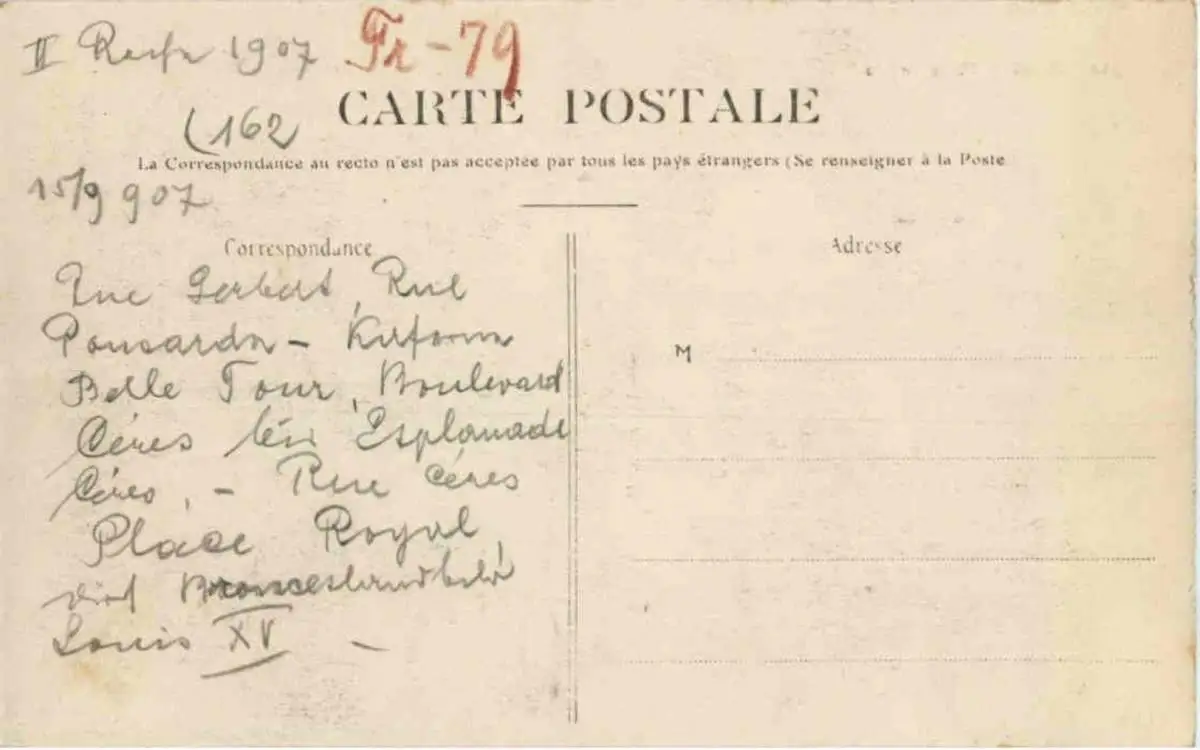 II 1907 Fr-79
(162
CARTE POSTALE
La Correspondance au recto n'est pas acceptée par tous les pays étrangers (Se renseigner à la Poste
15/9 907
Correspondance
Adresse
Rue Gerbert, Rue
Ponsardin -
Belle Tour, Boulevard
Céres Esplanade
Céres, - Rue Céres
Place Royal,
M
Louis XV -